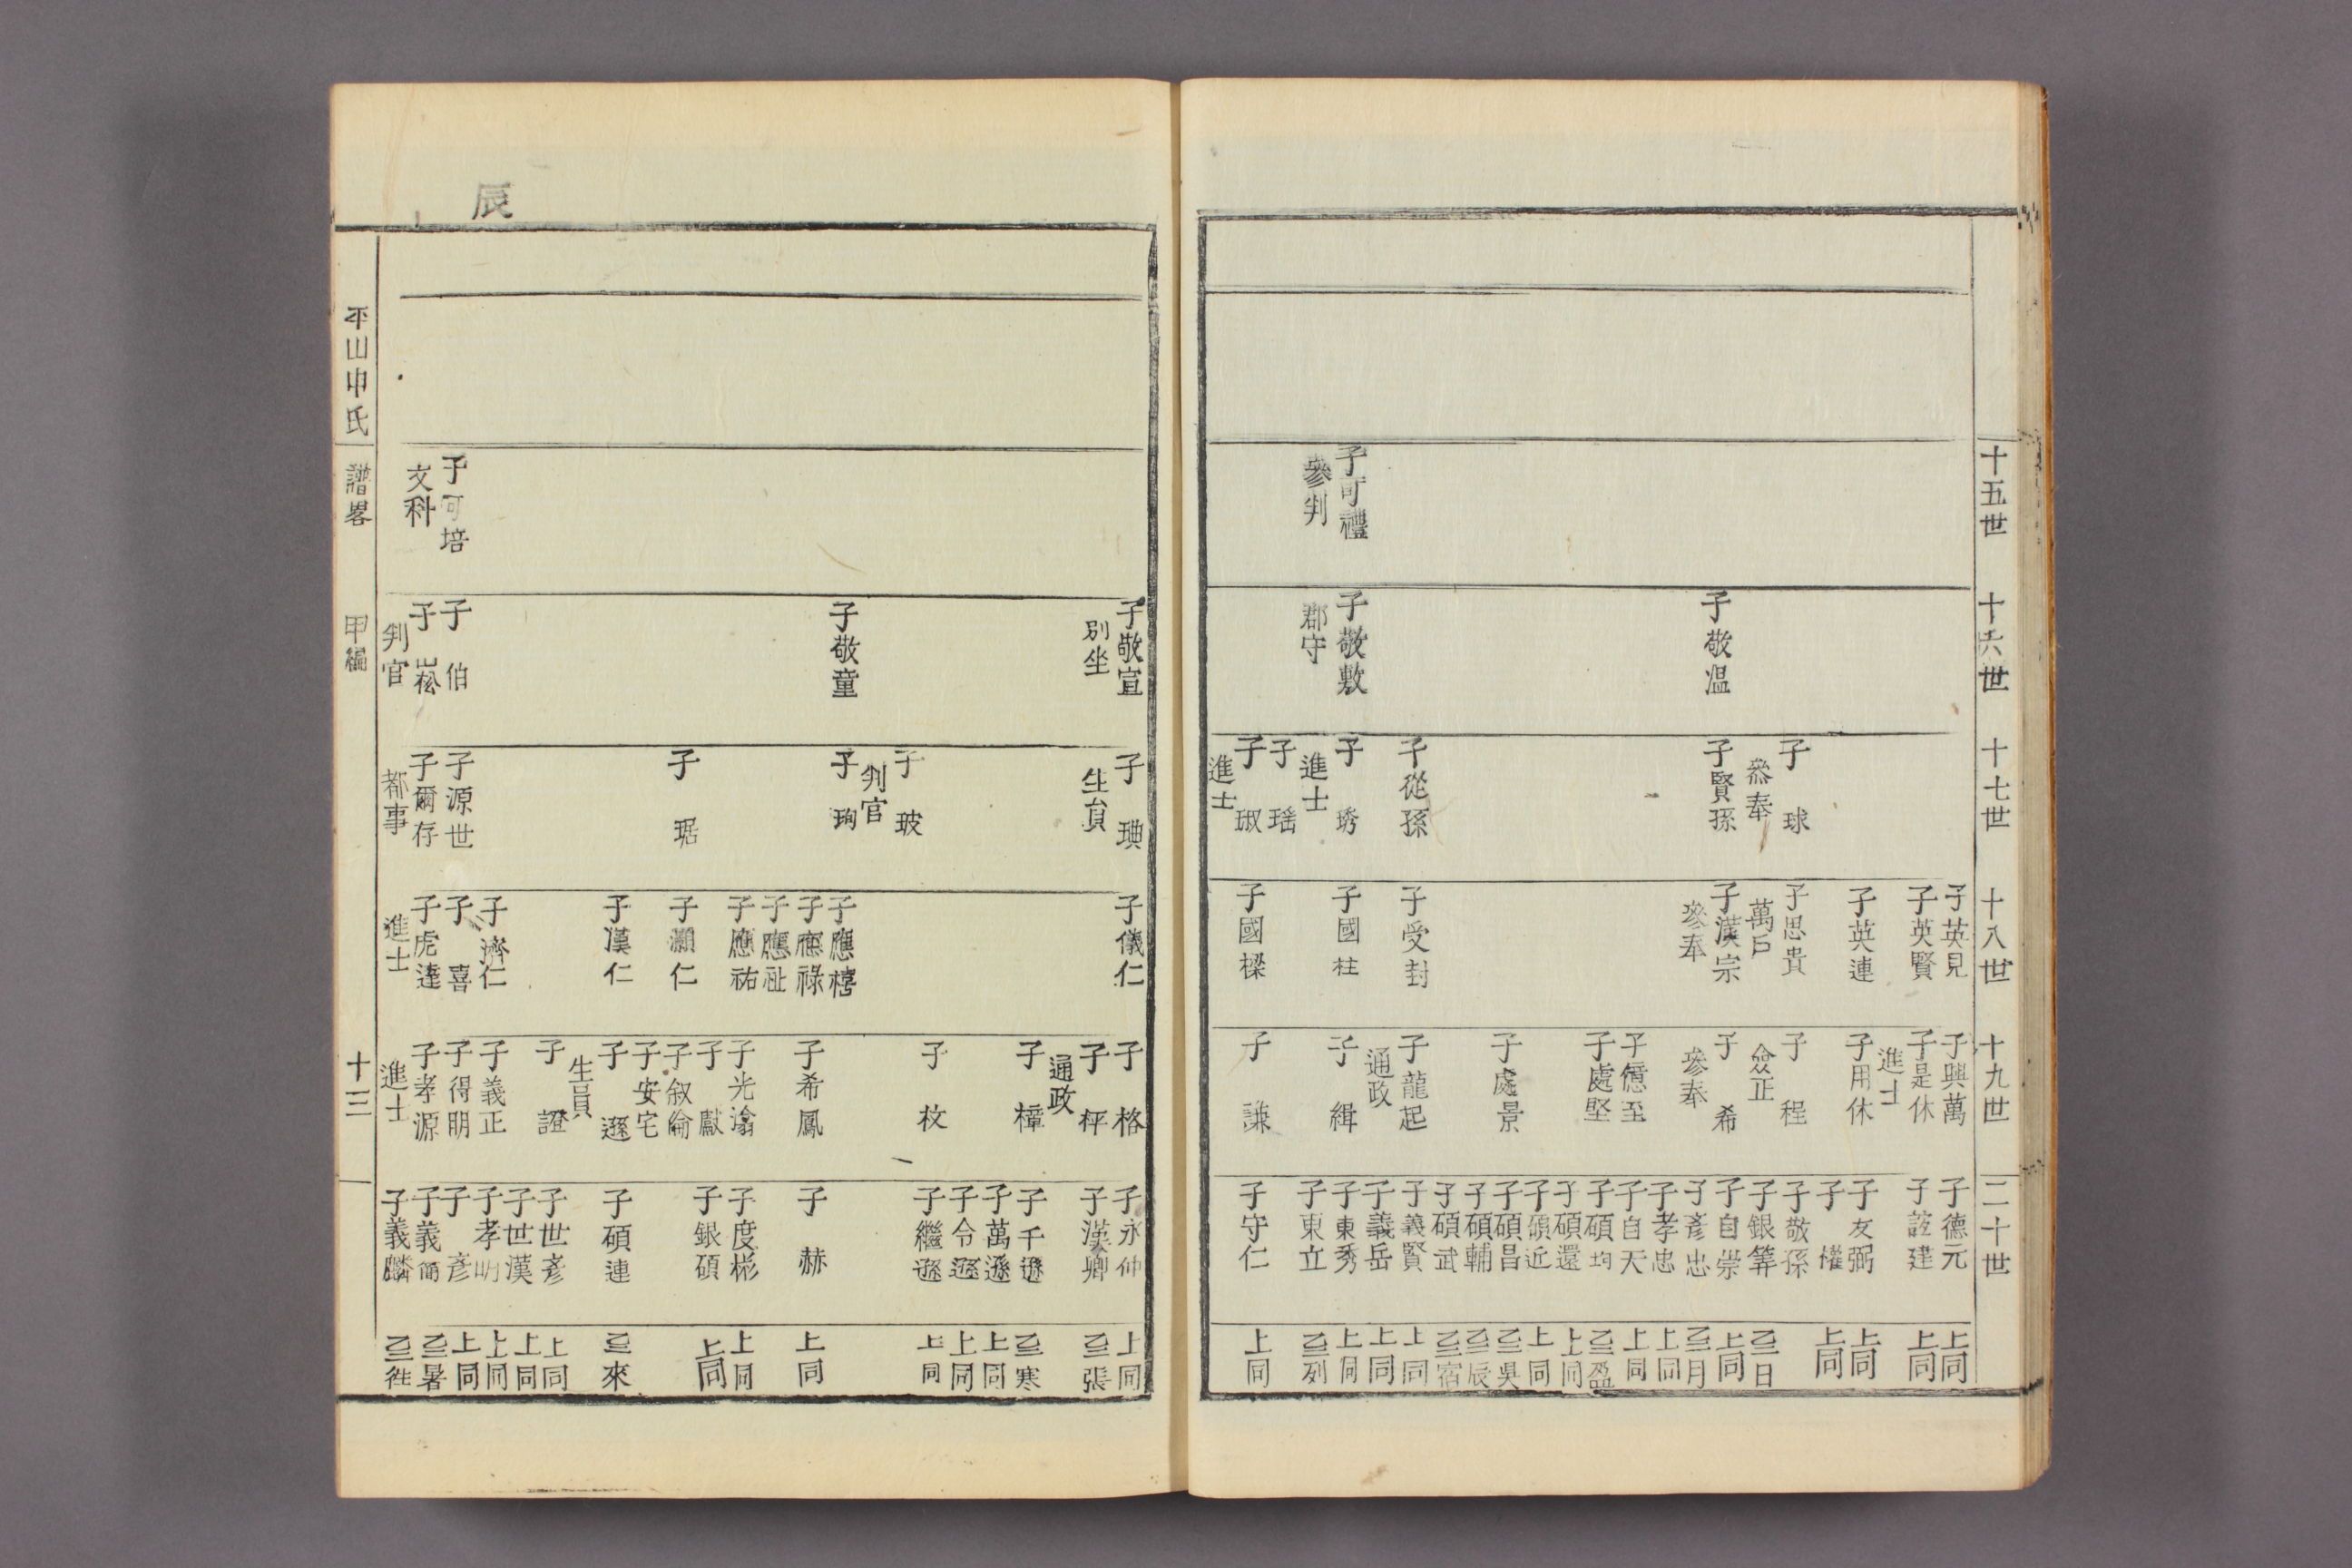 十五世
子可禮
參判
十六世
子敬温
子敬敷
郡守
十七世
子球
叅奉
子賢孫
子從孫
子琇
進士
子瑶
子琡
進士
十八世
子英見
子英賢
子英連
子思貴
萬戶
子漢宗
參奉
子受封
子國柱
子國樑
十九世
子興萬
子是休
進士
子用休
子程
僉正
子希
參奉
子億至
子處堅
子處景
子龍起
通政
子緝
子謙
二十世
子德元
子誼建
子友弼
子權
子敬孫
子銀筭
子自崇
子彥忠
子孝忠
子自天
子碩均
子碩還
子碩近
子碩昌
子碩輔
子碩武
子義賢
子義岳
子東秀
子東立
子守仁
上同
上同
上同
上同
日
上同
月
上同
上同
盈
上同
上同
吳
辰
宿
上同
上同
上同
列
上同
辰
子可培
文科
子敬宣
別坐
子敬童
子伯
子崧
判官
子㻁
生員
子玻
判官
子珣
子琚
子源世
子爾存
都事
子儀仁
子應禧
子應祿
子應祉
子應祐
子灝仁
子漢仁
子濟仁
子喜
子虎達
進士
子格
子枰
通政
子樟
子枚
子希鳳
子光瀹
子獻
子叙倫
子安宅
子遜
生員
子證
子義正
子得明
子孝源
進士
子永仲
子漢卿
子千遜
子萬遜
子令遜
子繼遜
子赫
子度彬
子銀碩
子碩連
子世彥
子世漢
子孝明
子彥
子義簡
子義麟
上同
張
寒
上同
上同
上同
上同
上同
上同
來
上同
上同
上同
上同
暑
往
平山申氏
譜畧
甲編
十三